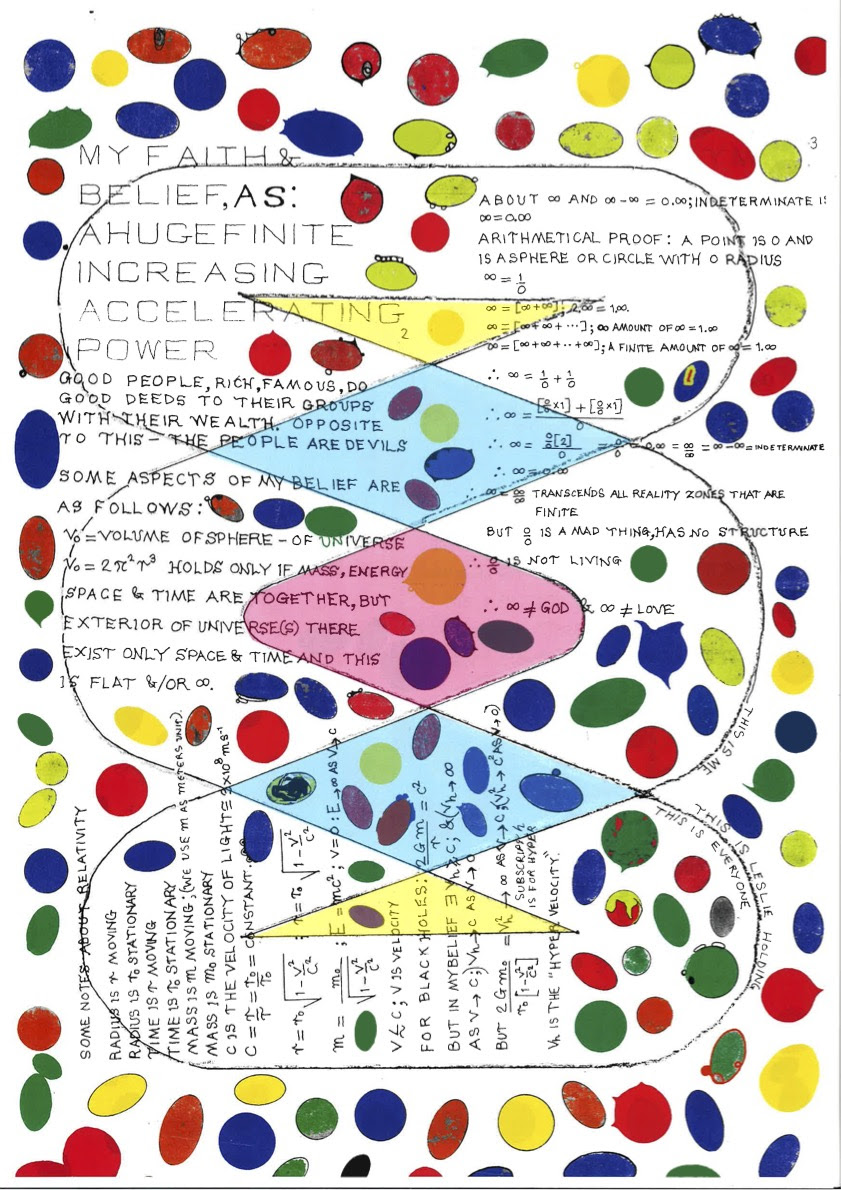 MY FAITH &
BELIEF, AS:
A HUGE FINITE
INCREASING
ACCELERATING
POWER
2
3
GOOD PEOPLE, RICH, FAMOUS, DO
GOOD DEEDS TO THEIR GROUPS
WITH THEIR WEALTH. OPPOSITE
TO THIS – THE PEOPLE ARE DEVILS
SOME ASPECTS OF MY BELIEF ARE
AS FOLLOWS:
V₀ = VOLUME OF SPHERE – OF UNIVERSE
V₀ = 2π²r³ HOLDS ONLY IF MASS, ENERGY
SPACE & TIME ARE TOGETHER, BUT
EXTERIOR OF UNIVERSE(S) THERE
EXIST ONLY SPACE & TIME AND THIS
IS FLAT &/OR ∞.
ABOUT ∞ AND ∞ – ∞ = 0.∞; INDETERMINATE IS
∞ = 0.00
ARITHMETICAL PROOF: A POINT IS 0 AND
IS A SPHERE OR CIRCLE WITH 0 RADIUS
∞ = 1/0
∞ = [∞+∞]; 2.∞ = 1.∞.
∞ = [∞+∞+ ···]; ∞ AMOUNT OF ∞ = 1.∞
∞ = [∞+∞+ ··· +∞]; A FINITE AMOUNT OF ∞ = 1.∞
∴ ∞ = 1/0 + 1/0
TRANSCENDS ALL REALITY ZONES THAT ARE
FINITE
BUT IS A MAD THING, HAS NO STRUCTURE
IS NOT LIVING
∴ ∞ ≠ GOD & ∞ ≠ LOVE
THIS IS ME
THIS IS EVERYONE
THIS IS LESLIE HOLDING
SOME NOTES ABOUT RELATIVITY
RADIUS IS r MOVING
RADIUS IS r₀ STATIONARY
TIME IS τ MOVING
TIME IS τ₀ STATIONARY
MASS IS m MOVING; (WE USE m AS METERS UNIT).
MASS IS m₀ STATIONARY
C IS THE VELOCITY OF LIGHT = 3×10⁸ms⁻¹
C = r/τ = r₀/τ₀ = CONSTANT.
r = r₀ √(1–v²/c²) ; τ = τ₀ √(1–v²/c²)
m = m₀/√(1–v²/c²) ; E = mc² ; V = 0 : E → ∞ AS V → C
V ≤ C ; V IS VELOCITY
FOR BLACK HOLES: 2Gm/r = c²
BUT IN MY BELIEF ∃ Vh ≥ C ; & (Vh → ∞
AS V → C ;) Vh → C AS V → 0
BUT 2Gm₀/r₀[1–v²/c²] = Vh² → ∞ AS V → C ; (Vh² → C² AS V → 0)
SUBSCRIPT h
IS FOR HYPER
Vh IS THE "HYPER VELOCITY."